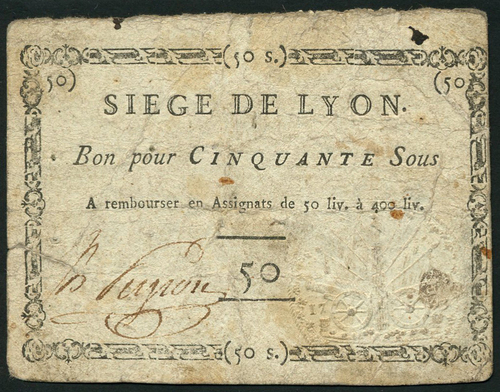 (50 s.)
(50) (50)
SIEGE DE LYON.
Bon pour CINQUANTE Sous
A rembourser en Assignats de 50 liv. à 400 liv.
50
17
(50 s.)